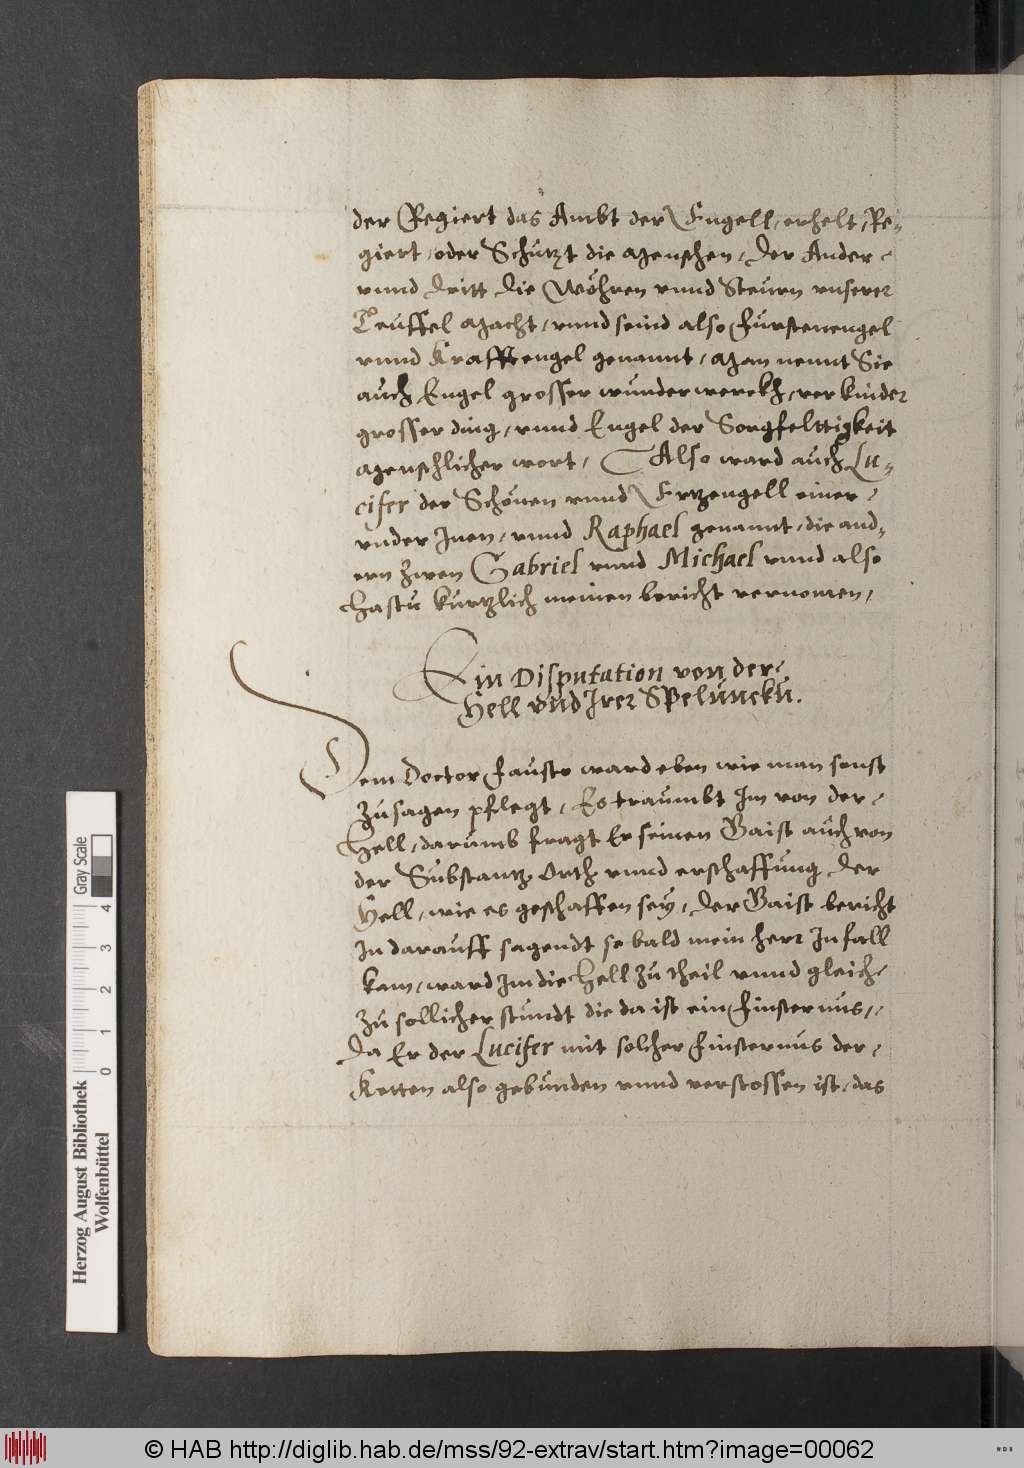 der Regiert das Ambt der Engell, erhelt, Re-
giert, oder Schützt die Menschen, Der Ander
vnnd dritt die Wöhren vnnd Steurn vnserer
Teuffel Macht, vnnd seind also Fürstenengel
vnnd Krafftengel genannt, Man nennt Sie
auch Engel grosser wunderwerckh, verkünder
grosser ding, vnnd Engel der Sorgfelttigkeit
Menschlicher wort, Also ward auch Lu-
cifer der Schönen vnnd Ertzengell einer
vnder Inen, vnnd Raphael genannt, die and-
ern zwen Gabriel vnnd Michael vnnd also
hastu kurtzlich meinen bericht vernomen,
Ein Disputation von der
Hell vnd Irer Speluncku.
Dem Doctor Fausto ward eben wie man sonst
zusagen pflegt, Es traumbt Im von der
Hell, darumb fragt Er seinen Gaist auch von
der Substantz Orth vnnd erschaffung der
Hell, wie es geschaffen sey, Der Gaist bericht
In darauff sagendt so bald mein herr In fall
kam, ward Im die Hell zu theil vnnd gleich
zu sollicher stundt die da ist ein Finsternus,
Da Er der Lucifer mit solcher Finsternus der
Ketten also gebunden vnnd verstossen ist, das
Herzog August Bibliothek
Wolfenbüttel
Gray Scale
0 1 2 3 4
© HAB http://diglib.hab.de/mss/92-extrav/start.htm?image=00062